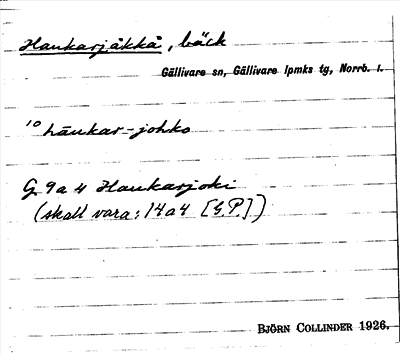 Haukarjåkkå, bäck
Gällivare sn, Gällivare lpmks tg, Norrb. l.
10 hāukar-johko
G 9a4 Haukarjoki
(skall vara: 14a4 [G.P.])
BJÖRN COLLINDER 1926.